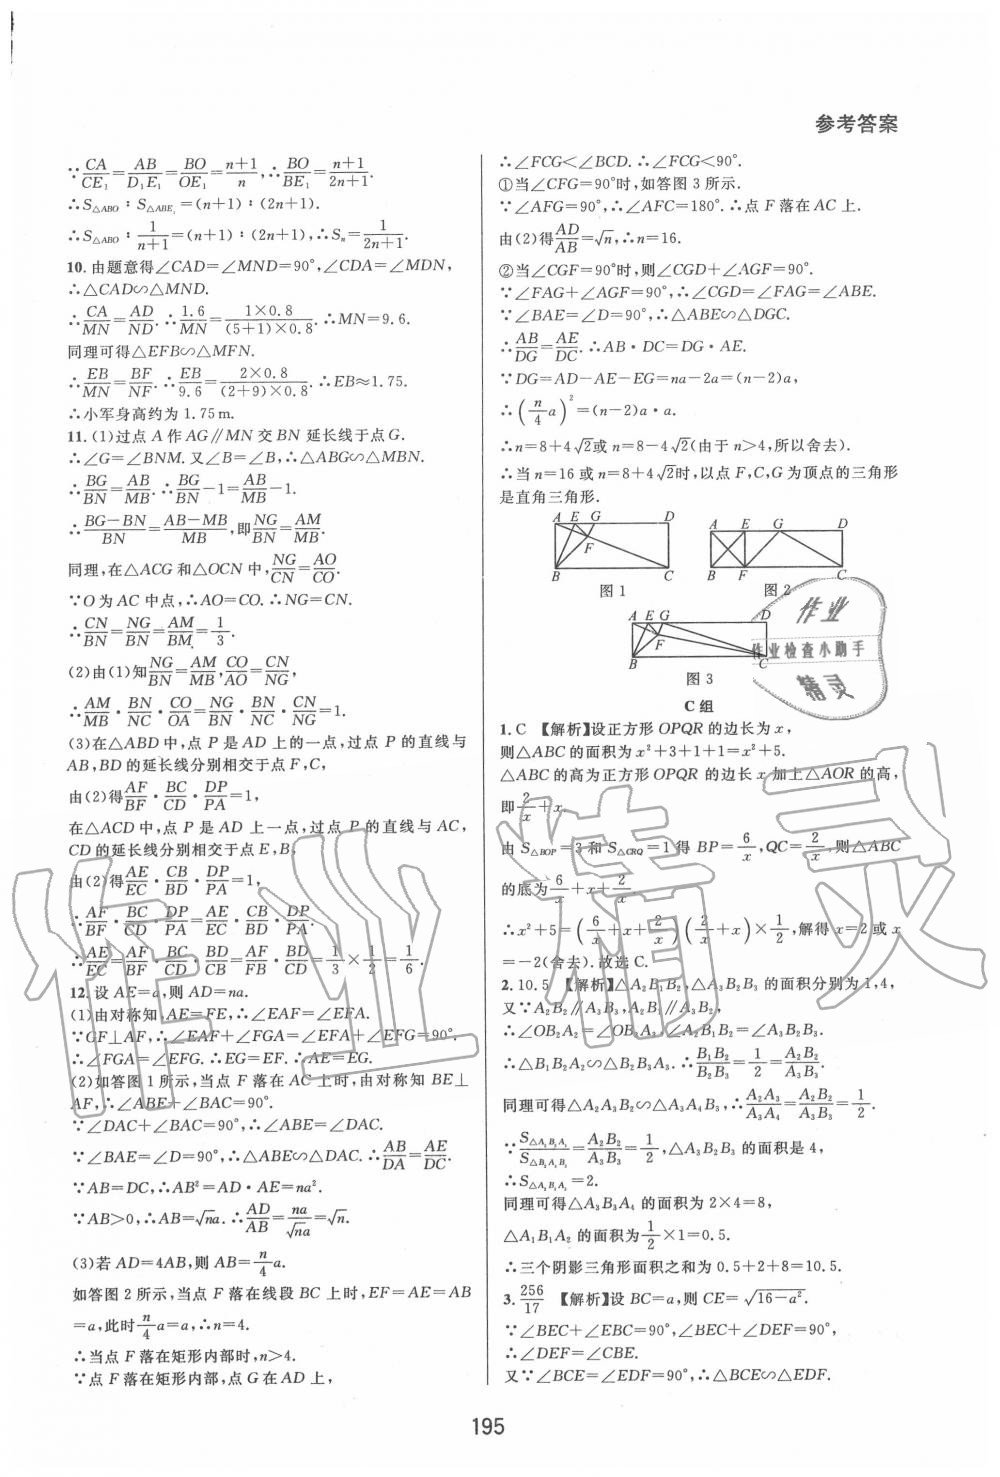 参考答案
∵CA/CE₁=AB/D₁E₁=BO/OE₁=(n+1)/n,∴BO/BE₁=(n+1)/(2n+1).
∴S△ABO∶S△ABE₁=(n+1)∶(2n+1).
∴S△ABO∶1/(n+1)=(n+1)∶(2n+1),∴Sₙ=1/(2n+1).
10.由题意得∠CAD=∠MND=90°,∠CDA=∠MDN,
∴△CAD∽△MND.
∴CA/MN=AD/ND.∴1.6/MN=(1×0.8)/((5+1)×0.8).∴MN=9.6.
同理可得△EFB∽△MFN.
∴EB/MN=BF/NF.∴EB/9.6=(2×0.8)/((2+9)×0.8).∴EB≈1.75.
∴小军身高约为1.75m.
11.(1)过点A作AG∥MN交BN延长线于点G.
∴∠G=∠BNM.又∠B=∠B,∴△ABG∽△MBN.
∴BG/BN=AB/MB.∴BG/BN-1=AB/MB-1.
∴(BG-BN)/BN=(AB-MB)/MB,即NG/BN=AM/MB.
同理,在△ACG和△OCN中,NG/CN=AO/CO.
∵O为AC中点,∴AO=CO.∴NG=CN.
∴CN/BN=NG/BN=AM/BM=1/3.
(2)由(1)知NG/BN=AM/MB,CO/AO=CN/NG,
∴AM/MB·BN/NC·CO/OA=NG/BN·BN/NC·CN/NG=1.
(3)在△ABD中,点P是AD上的一点,过点P的直线与
AB,BD的延长线分别相交于点F,C,
由(2)得AF/BF·BC/CD·DP/PA=1,
在△ACD中,点P是AD上一点,过点P的直线与AC,
CD的延长线分别相交于点E,B,
由(2)得AE/EC·CB/BD·DP/PA=1,
∴AF/BF·BC/CD·DP/PA=AE/EC·CB/BD·DP/PA.
∴AE/EC=AF/BF·BC/CD·BD/CB=AF/FB·BD/CD=1/3×1/2=1/6.
12.设AE=a,则AD=na.
(1)由对称知,AE=FE,∴∠EAF=∠EFA.
∵GF⊥AF,∴∠EAF+∠FGA=∠EFA+∠EFG=90°.
∴∠FGA=∠EFG.∴EG=EF.∴AE=EG.
(2)如答图1所示,当点F落在AC上时,由对称知BE⊥
AF,∴∠ABE+∠BAC=90°.
∵∠DAC+∠BAC=90°,∴∠ABE=∠DAC.
∵∠BAE=∠D=90°,∴△ABE∽△DAC.∴AB/DA=AE/DC.
∵AB=DC,∴AB²=AD·AE=na².
∵AB>0,∴AB=√na.∴AD/AB=na/√na=√n.
(3)若AD=4AB,则AB=n/4a.
如答图2所示,当点F落在线段BC上时,EF=AE=AB
=a,此时n/4a=a,∴n=4.
∴当点F落在矩形内部时,n>4.
∵点F落在矩形内部,点G在AD上,
∴∠FCG<∠BCD.∴∠FCG<90°.
①当∠CFG=90°时,如答图3所示.
∵∠AFG=90°,∴∠AFC=180°.∴点F落在AC上.
由(2)得AD/AB=√n,∴n=16.
②当∠CGF=90°时,则∠CGD+∠AGF=90°.
∵∠FAG+∠AGF=90°,∴∠CGD=∠FAG=∠ABE.
∵∠BAE=∠D=90°,∴△ABE∽△DGC.
∴AB/DG=AE/DC.∴AB·DC=DG·AE.
∵DG=AD-AE-EG=na-2a=(n-2)a,
∴(n/4a)²=(n-2)a·a.
∴n=8+4√2或n=8-4√2(由于n>4,所以舍去).
∴当n=16或n=8+4√2时,以点F,C,G为顶点的三角形
是直角三角形.
A E G D
F
B C
图1
A E G D
B F C
图2
A E G D
F
B C
图3
C组
1.C 【解析】设正方形OPQR的边长为x,
则△ABC的面积为x²+3+1+1=x²+5.
△ABC的高为正方形OPQR的边长x加上△AOR的高,
即2/x+x.
由S△BOP=3和S△CRQ=1得BP=6/x,QC=2/x,则△ABC
的底为6/x+x+2/x.
∴x²+5=(6/x+x+2/x)(2/x+x)×1/2,解得x=2或x
=-2(舍去).故选C.
2.10.5 【解析】△A₂B₁B₂,△A₃B₂B₃的面积分别为1,4,
又∵A₂B₂∥A₃B₃,A₂B₁∥A₃B₂,
∴∠OB₂A₂=∠OB₃A₃,∠A₂B₁B₂=∠A₃B₂B₃.
∴△B₁B₂A₂∽△B₂B₃A₃.∴B₁B₂/B₂B₃=1/2=A₂B₂/A₃B₃.
同理可得△A₂A₃B₂∽△A₃A₄B₃,∴A₂A₃/A₃A₄=A₂B₂/A₃B₃=1/2.
∵S△A₂B₂A₃/S△B₂B₃A₃=A₂B₂/A₃B₃=1/2,△A₃B₂B₃的面积是4,
∴S△A₂B₂A₃=2.
同理可得△A₃B₃A₄的面积为2×4=8,
△A₁B₁A₂的面积为1/2×1=0.5.
∴三个阴影三角形面积之和为0.5+2+8=10.5.
3.256/17 【解析】设BC=a,则CE=√(16-a²).
∵∠BEC+∠EBC=90°,∠BEC+∠DEF=90°,
∴∠DEF=∠CBE.
又∵∠BCE=∠EDF=90°,∴△BCE∽△EDF.
作业
作业检查小助手
精灵
作业精灵
195